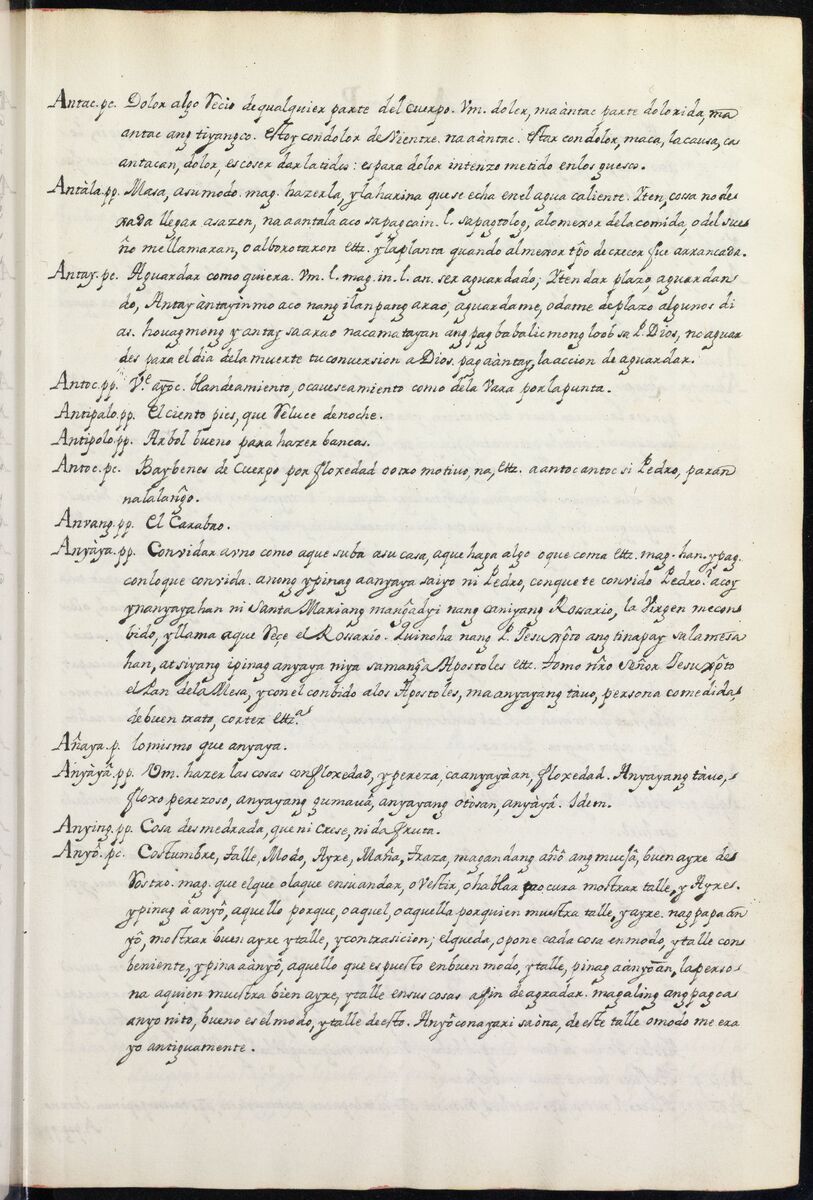 Antac. pc. Dolor algo recio de qualquier parte del cuerpo. Vm. doler, ma àntac parte dolorida, ma
antac ang tiyangco. estoy con dolor de vientre. na aàntac. estar con dolor, maca, la causa, ca
antacan, dolor, escoser dar latidos: es para dolor intenzo metido en los guesos.
Antàla. pp. Masa, a su modo. mag. hazerla, y la harina que se echa en el agua caliente. Yten, cossa no de
xada llegar a sazon, na aantala aco sa pagcain. l. sa pagtolog, al omexor de la comida, o del sue
ño me llamaran, o alborotaron ettz. y la planta quando al mexor tp̃o de crecer fue arrancada.
Antay. pc. Aguardar como quiera. Vm. l. mag. in. l. an. ser aguardado; Yten dar plazo aguardan
do, Antay àntayin mo aco nang ilan pang arao, aguardame, o dame de plazo algunos di
as. houag mong y antay sa arao na camatayan ang pag babalic mong loob sa P. Dios, no aguar
des para el dia de la muerte tu conversion a Dios. pag aàntay, la accion de aguardar.
Antoc. pp. Vᵉ ayoc. blandeamiento, o caveseamiento como de la vara por la punta.
Antipalo. pp. El ciento pies, que reluce de noche.
Antipolo. pp. Arbol bueno para hazer bancas.
Antoc. pc. Baybenes de Cuerpo por floxedad o otro motivo, na, ettz. a antoc antoc si Pedro, paran
nalalañgo.
Anvang. pp. El Carabao.
Anyàya. pp. Convidar a vno como a que suba a su casa, a que haga algo o que coma ettz. mag. han. y pag.
con lo que convida. anong ypinag aanyaya saiyo ni Pedro, con que te convido Pedro? acoy
ynanyayahan ni Santa Mariang mang̃adyi nang caniyang Rossario, la Virgen me con
bido, y llama a que reçe el Rossario. Quinoha nang P. Jesuxp̃to ang tinapay sa lamesa
han, at siyang ipinag anyaya niya sa mang̃a Apostoles ettz. tomo nr̃o Señor Jesuxp̃to
el Pan de la Mesa, y con el conbido a los Apostoles, ma anyayang tàuo, persona comedida,
de buen trato, cortez ettz.ᵃ
Añaya. p. lo mismo que anyaya.
Anyàyâ. pp. Vm. hazer las cosas con floxedad, y pereza, ca anyayàan, floxedad. Anyayang tàuo,
floxo perezoso, anyayang gumauâ, anyayang otòsan, anyàyâ. Idem.
Anying. pp. Cosa desmedrada, que ni crese, ni da fruta.
Anyô. pc. Costumbre, talle, Modo, Ayre, Maña, traza, magandang añô ang muc̃hâ, buen ayre de
rostro. mag. que el que o la que en su andar, o vestir, o hablar procura mostrar talle, y Ayres.
y pinag à anyô, aquello porque, o aquel, o aquella por quien muestra talle, y ayre. nag papa an
yô, mostrar buen ayre y talle, y contrasicion; el queda, o pone cada cosa en modo, y talle con
beniente, y pina aànyô, aquello que es puesto en buen modo, y talle, pinag aànyoân, la perso
na a quien muestra bien ayre, y talle en sus cosas a fin de agradar. magaling ang pagca
anyo nito, bueno es el modo, y talle de esto. Anyô co na yari sa òna, de este talle o modo me era
yo antiguamente.